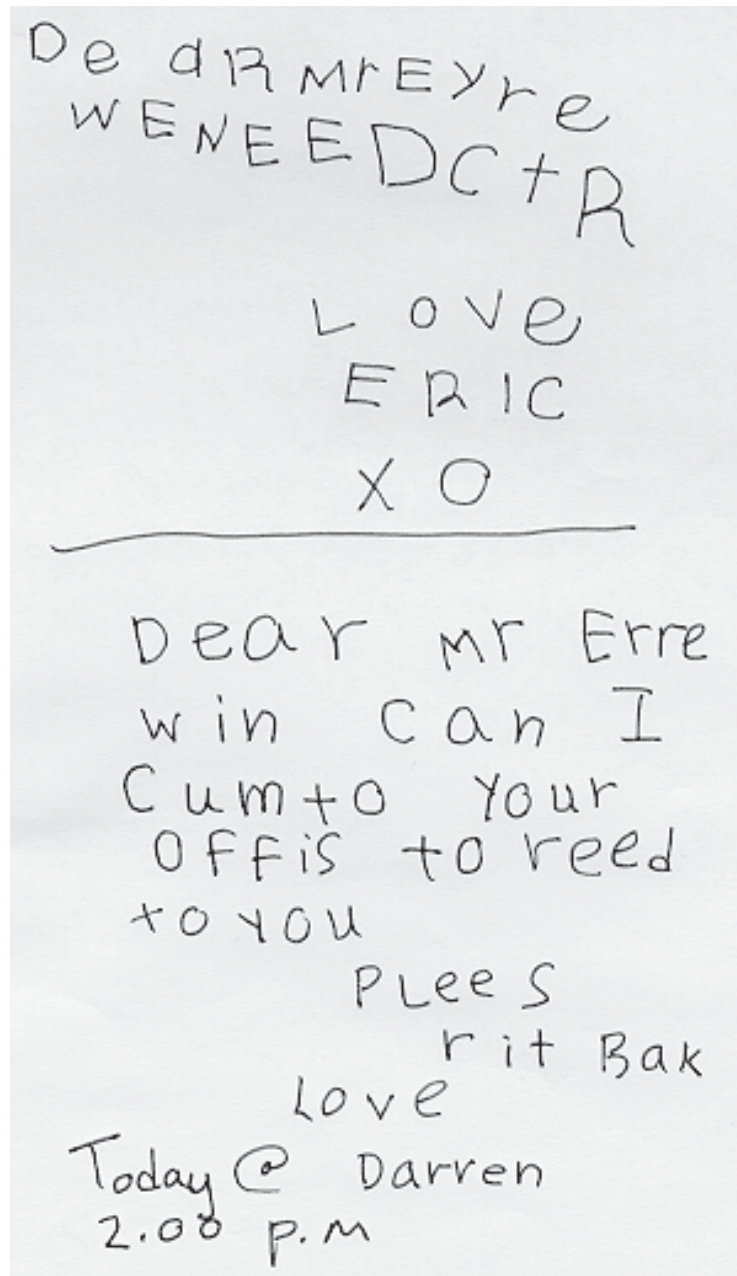 De aR Mr Eyre
WENEEDCtR
Love
ERIC
XO
Dear mr Erre
win can I
Cumto Your
OFFis to reed
to you
PLees
rit Bak
Love
Today @ Darren
2.00 p.m